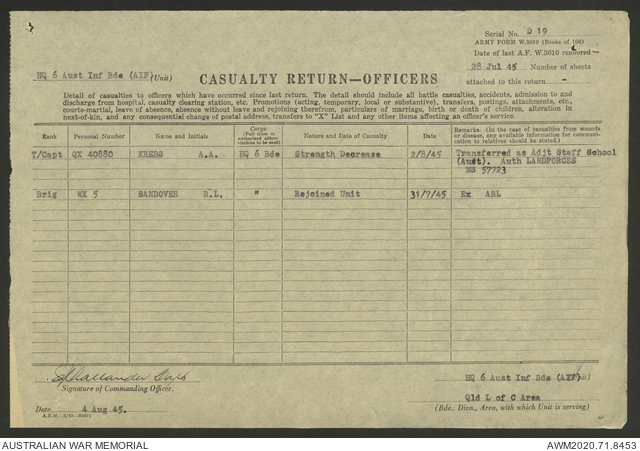 Serial No. D 19
ARMY FORM W.3010 (Books of 100)
Date of last A.F. W.3010 rendered
28 Jul 45 Number of sheets
attached to this return -
HQ 6 Aust Inf Bde (AIF) (Unit)
CASUALTY RETURN—OFFICERS
Detail of casualties to officers which have occurred since last return. The detail should include all battle casualties, accidents, admission to and
discharge from hospital, casualty clearing station, etc. Promotions (acting, temporary, local or substantive), transfers, postings, attachments, etc.,
courts-martial, leave of absence, absence without leave and rejoining therefrom, particulars of marriage, birth or death of children, alteration in
next-of-kin, and any consequential change of postal address, transfers to "X" List and any other items affecting an officer's service.
Rank Personal Number Name and Initials Corps (Full titles or authorized abbreviations to be used) Nature and Date of Casualty Date Remarks. (In the case of casualties from wounds or disease, any available information for communication to relatives should be stated.)
T/Capt QX 40880 KREBS A.A. HQ 6 Bde Strength Decrease 2/8/45 Transferred as Adjt Staff School
(Aust). Auth LANDFORCES
MS 57723
Brig WX 5 SANDOVER R.L. " Rejoined Unit 31/7/45 Ex ARL
Capt
Signature of Commanding Officer.
Date 4 Aug 45.
HQ 6 Aust Inf Bde (AIF) (Unit)
Qld L of C Area
(Bde., Divn., Area, with which Unit is serving)
AUSTRALIAN WAR MEMORIAL
AWM2020.71.8453